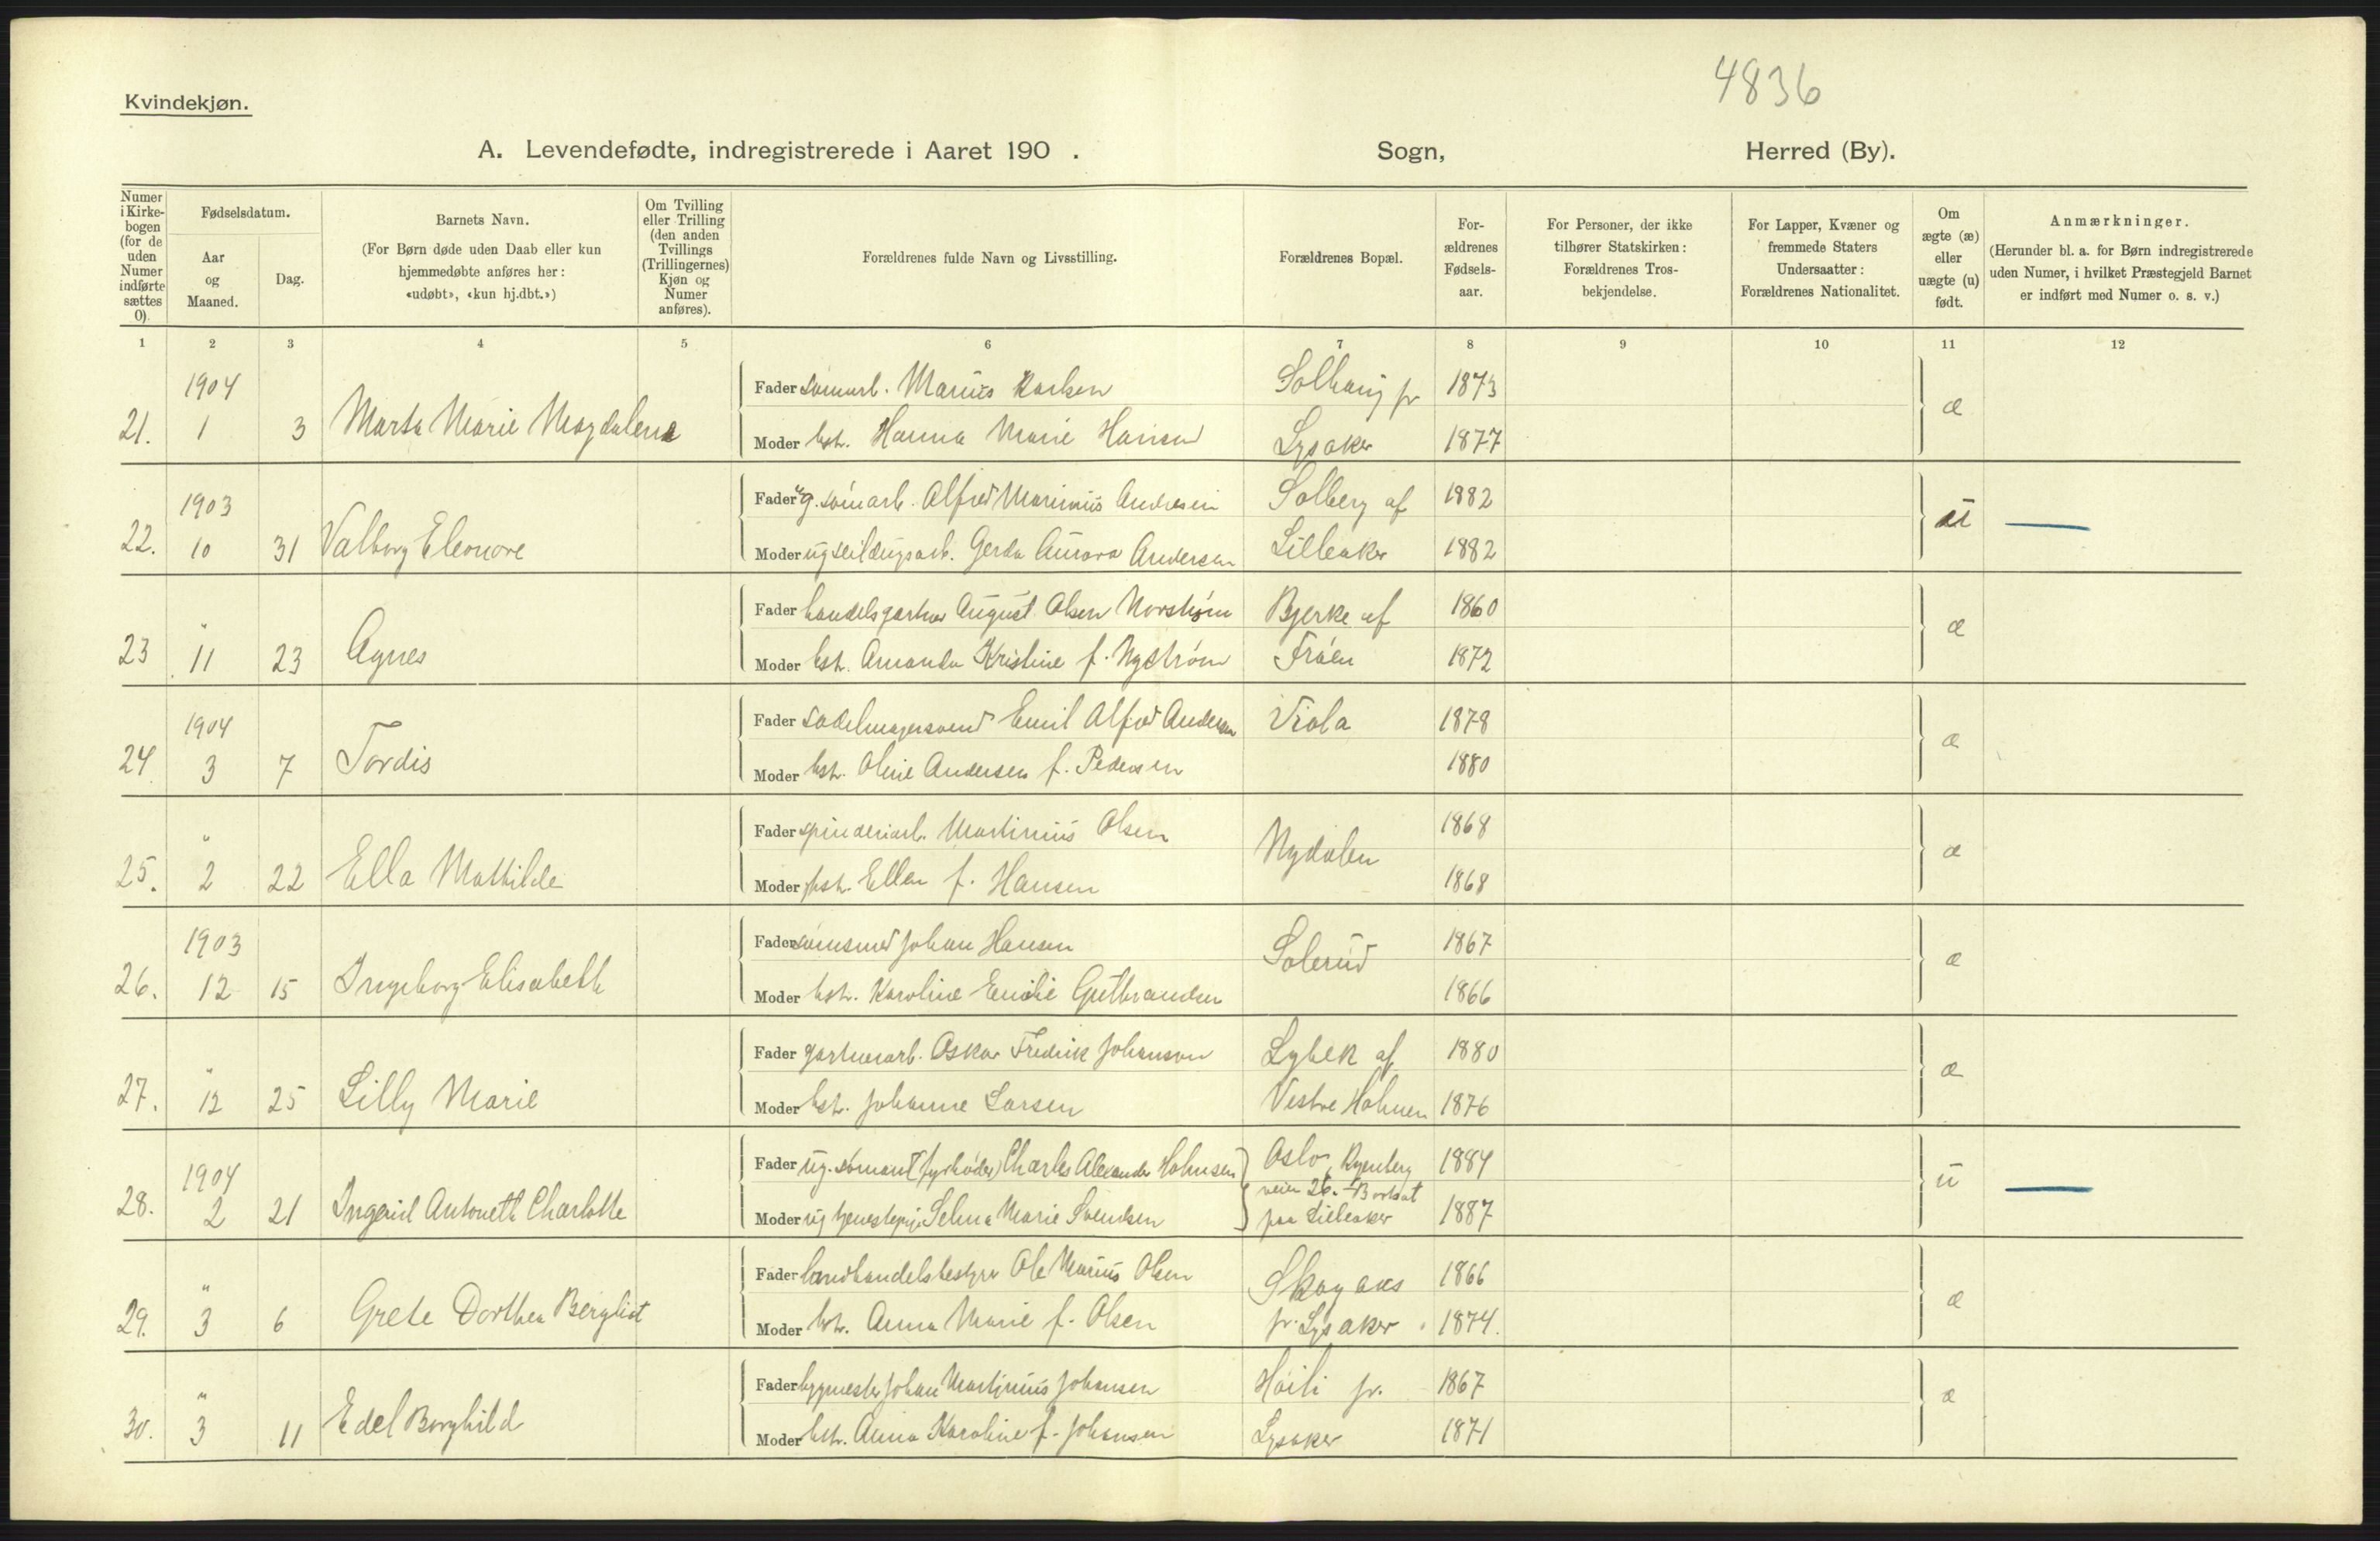 4836
Kvindekjøn.
A. Levendefødte, indregistrerede i Aaret 190 . Sogn, Herred (By).
Numer i Kirke-bogen (for de uden Numer indførte sættes 0).
Fødselsdatum.
Aar og Maaned.
Dag.
Barnets Navn.
(For Børn døde uden Daab eller kun
hjemmedøbte anføres her:
«udøbt», «kun hj.dbt.»)
Om Tvilling
eller Trilling
(den anden
Tvillings
(Trillingernes)
Kjøn og
Numer
anføres).
Forældrenes fulde Navn og Livsstilling.
Forældrenes Bopæl.
For-
ældrenes
Fødsels-
aar.
For Personer, der ikke
tilhører Statskirken:
Forældrenes Tros-
bekjendelse.
For Lapper, Kvæner og
fremmede Staters
Undersaatter:
Forældrenes Nationalitet.
Om
ægte (æ)
eller
uægte (u)
født.
Anmærkninger.
(Herunder bl. a. for Børn indregistrerede
uden Numer, i hvilket Præstegjeld Barnet
er indført med Numer o. s. v.)
1 2 3 4 5 6 7 8 9 10 11 12
1904
Fader Marius Karlsen Solhaug pr 1873
21. 1 3 Marta Marie Magdalena æ
Moder hst. Hanna Marie Hansen Lysaker 1877
1903
Fader ug. sømarb. Alfred Marinius Andresen Solberg af 1882
22. 10 31 Valborg Eleonore u
Moder ug seildugsarb. Gerda Aurora Andersen Lilleaker 1882
Fader handelsgartner August Olsen Norstrøm Bjerke af 1860
23 " 11 23 Agnes æ
Moder hst. Amanda Kristine f. Nystrøm Frøen 1872
1904
Fader sadelmagersvend Emil Alfred Andersen Viola 1878
24 3 7 Tordis æ
Moder hst. Oline Andersen f. Pedersen 1880
Fader spinderiarb. Martinius Olsen 1868
25. " 2 22 Ella Mathilde Nydalen æ
Moder hst. Ellen f. Hansen 1868
1903
Fader sømsmed Johan Hansen Solerud 1867
26. 12 15 Ingeborg Elisabeth æ
Moder hst. Karoline Emilie Gutbrandsen 1866
Fader gartnerarb. Oskar Fredrik Johanson Lybek af 1880
27. " 12 25 Lilly Marie æ
Moder hst. Johanne Larsen Vestre Holmen 1876
1904
Fader ug. sømand (fyrbøder) Charles Alexander Holmsen Oslo, Ryenberg 1884
veien 26. Bortsat
28. 2 21 Ingerid Antonette Charlotte u
Moder ug tjenestepige Selma Marie Svendsen paa Lilleaker 1887
Fader landhandelsbestyrer Ole Marius Olsen Skogaas 1866
29. " 3 6 Grete Dorthea Bergliot æ
Moder hst. Anna Marie f. Olsen pr. Lysaker 1874.
Fader bygmester Johan Martinius Johansen pr. 1867
30. " 3 11 Edel Borghild æ
Moder hst. Anna Karoline f. Johansen Lysaker 1871